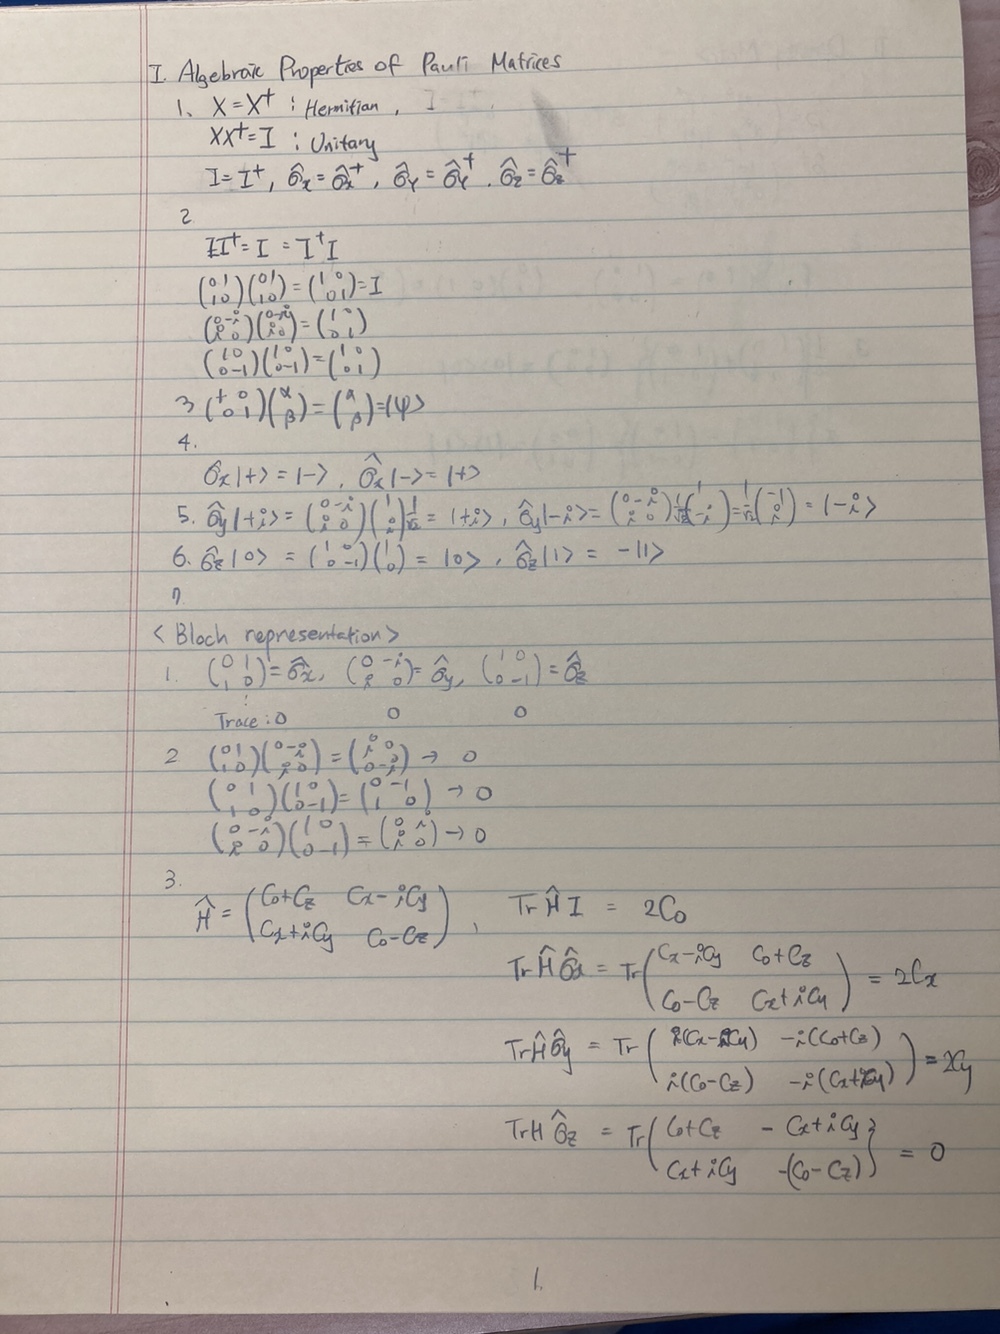 I. Algebraic Properties of Pauli Matrices
1. X = X† : Hermitian, I
XX† = I : Unitary
I = I†, σ̂x = σ̂x†, σ̂y = σ̂y†, σ̂z = σ̂z†
2
II† = I = I†I
(0 1; 1 0)(0 1; 1 0) = (1 0; 0 1) = I
(0 -i; i 0)(0 -i; i 0) = (1 0; 0 1)
(1 0; 0 -1)(1 0; 0 -1) = (1 0; 0 1)
3 (1 0; 0 1)(α; β) = (α; β) = |ψ>
4.
σ̂x|+> = |->, σ̂x|-> = |+>
5. σ̂y|+i> = (0 -i; i 0)(1; i) 1/√2 = |+i>, σ̂y|-i> = (0 -i; i 0) 1/√2 (1; -i) = 1/√2 (-1; i) = |-i>
6. σ̂z|0> = (1 0; 0 -1)(1; 0) = |0>, σ̂z|1> = -|1>
7.
< Bloch representation >
1. (0 1; 1 0) = σ̂x, (0 -i; i 0) = σ̂y, (1 0; 0 -1) = σ̂z
Trace : 0 0 0
2 (0 1; 1 0)(0 -i; i 0) = (i 0; 0 -i) → 0
(0 1; 1 0)(1 0; 0 -1) = (0 -1; 1 0) → 0
(0 -i; i 0)(1 0; 0 -1) = (0 i; i 0) → 0
3.
Ĥ = (C0+Cz Cx-iCy; Cx+iCy C0-Cz), Tr Ĥ I = 2C0
Tr Ĥ σ̂x = Tr (Cx-iCy C0+Cz; C0-Cz Cx+iCy) = 2Cx
Tr Ĥ σ̂y = Tr (i(Cx-iCy) -i(C0+Cz); i(C0-Cz) -i(Cx+iCy)) = 2Cy
Tr H σ̂z = Tr (C0+Cz -Cx+iCy; Cx+iCy -(C0-Cz)) = 0
1.